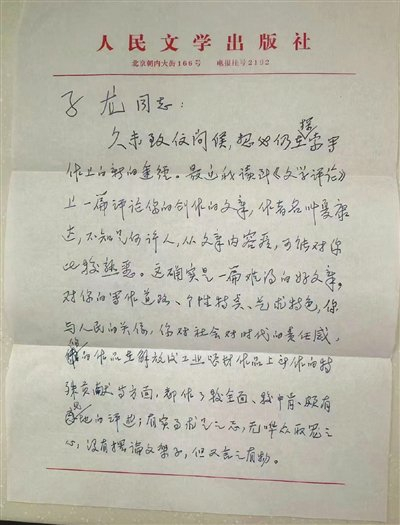 人民文学出版社
北京朝内大街166号 电报挂号2192
子龙同志：
久未致信问候，想必仍在探索写
作上的新的进程。最近我读到《文学评论》
上一篇评论你的创作的文章，作者名叫夏康
达，不知是何许人，从文章内容看，可能对你
比较熟悉。这确实是一篇难得的好文章，
对你的写作道路、个性特点、艺术特色，你
与人民的关系，你对社会对时代的责任感，
你的作品在解放后工业题材作品上所作的特
殊贡献等方面，都作了较全面、较中肯、颇有
见地的评述；有实事求是之心，无哗众取宠之
心，没有摆论文架子，但又言之有物。